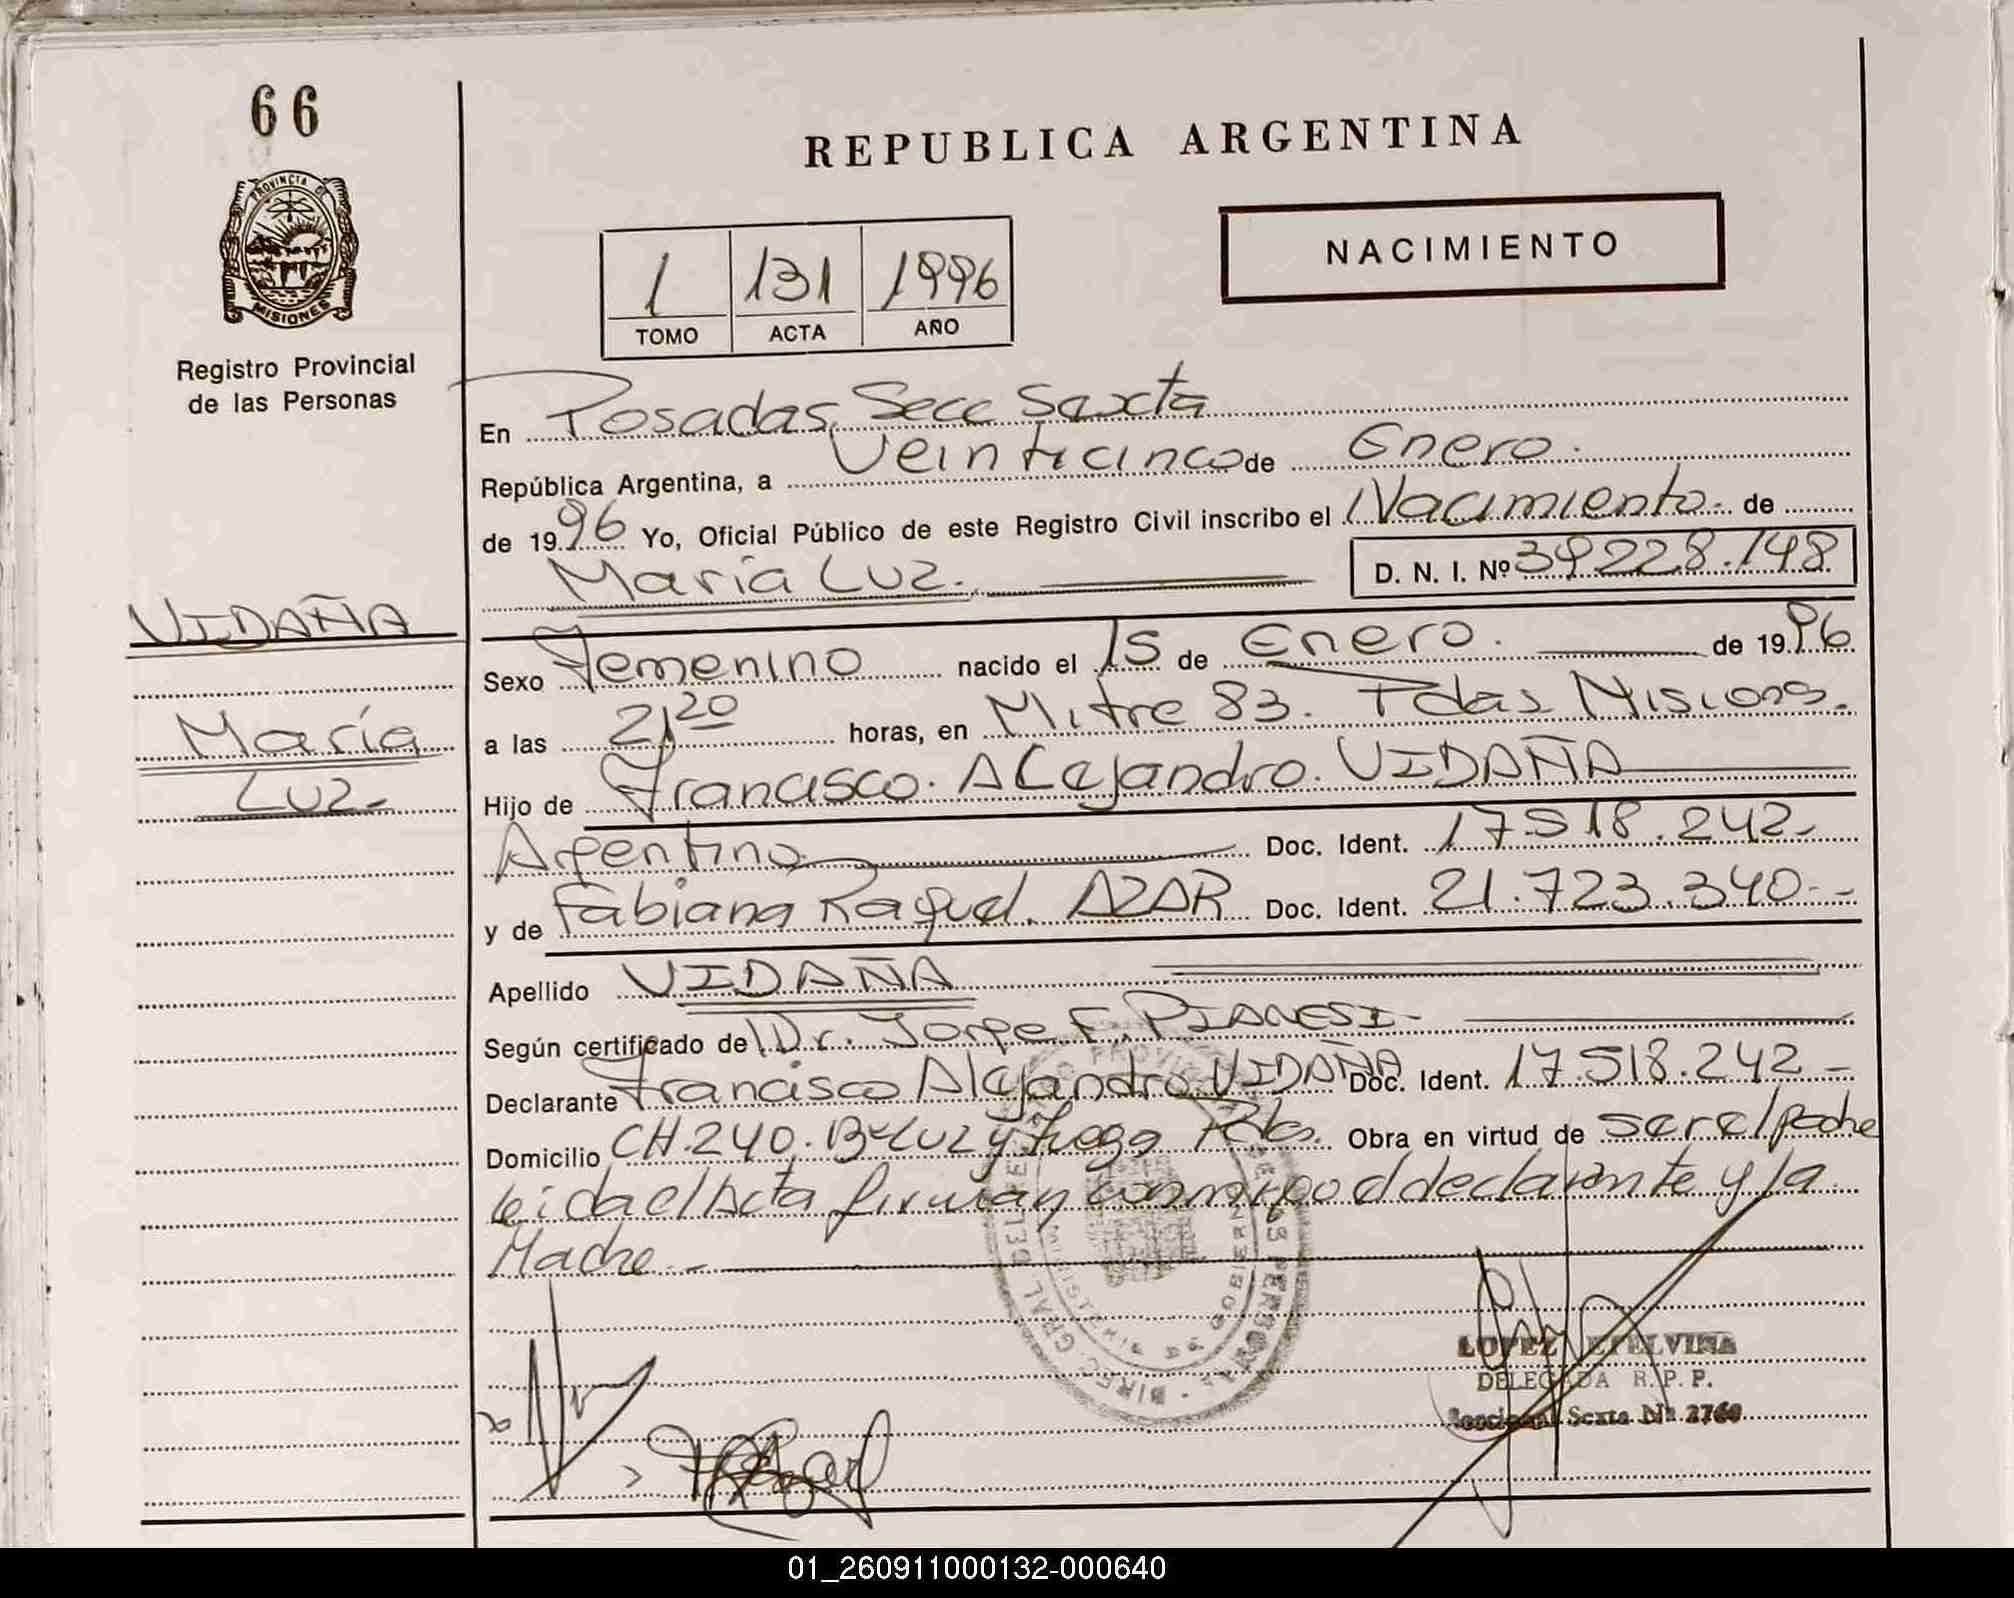 66
REPUBLICA ARGENTINA
PROVINCIA DE
MISIONES
NACIMIENTO
1 131 1996
TOMO ACTA AÑO
Registro Provincial
de las Personas
En Posadas, Secc Sexta
República Argentina, a Veinticinco de Enero.
de 1996 Yo, Oficial Público de este Registro Civil inscribo el Nacimiento. de
María Luz. D. N. I. Nº 39.228.748
VIDAÑA
María
Luz.
Sexo Femenino nacido el 15 de Enero. de 1996
a las 21,20 horas, en Mitre 83. Pdas Misiones.
Hijo de Francisco. Alejandro. VIDAÑA
Argentina Doc. Ident. 17.518.242-
y de Fabiana Raquel. AZAR Doc. Ident. 21.723.340--
Apellido VIDAÑA
Según certificado de Dr. Jorge F. PIANESI-
Declarante Francisco Alejandro VIDAÑA Doc. Ident. 17.518.242-
Domicilio CH.240. Bº Luz y Fuega Pdas. Obra en virtud de ser el padre
leida el Acta firman conmigo el declarante y la
Madre.-
LOPEZ ETELVINA
DELEGADA R. P. P.
Seccional Sexta Nº 2760
01_260911000132-000640